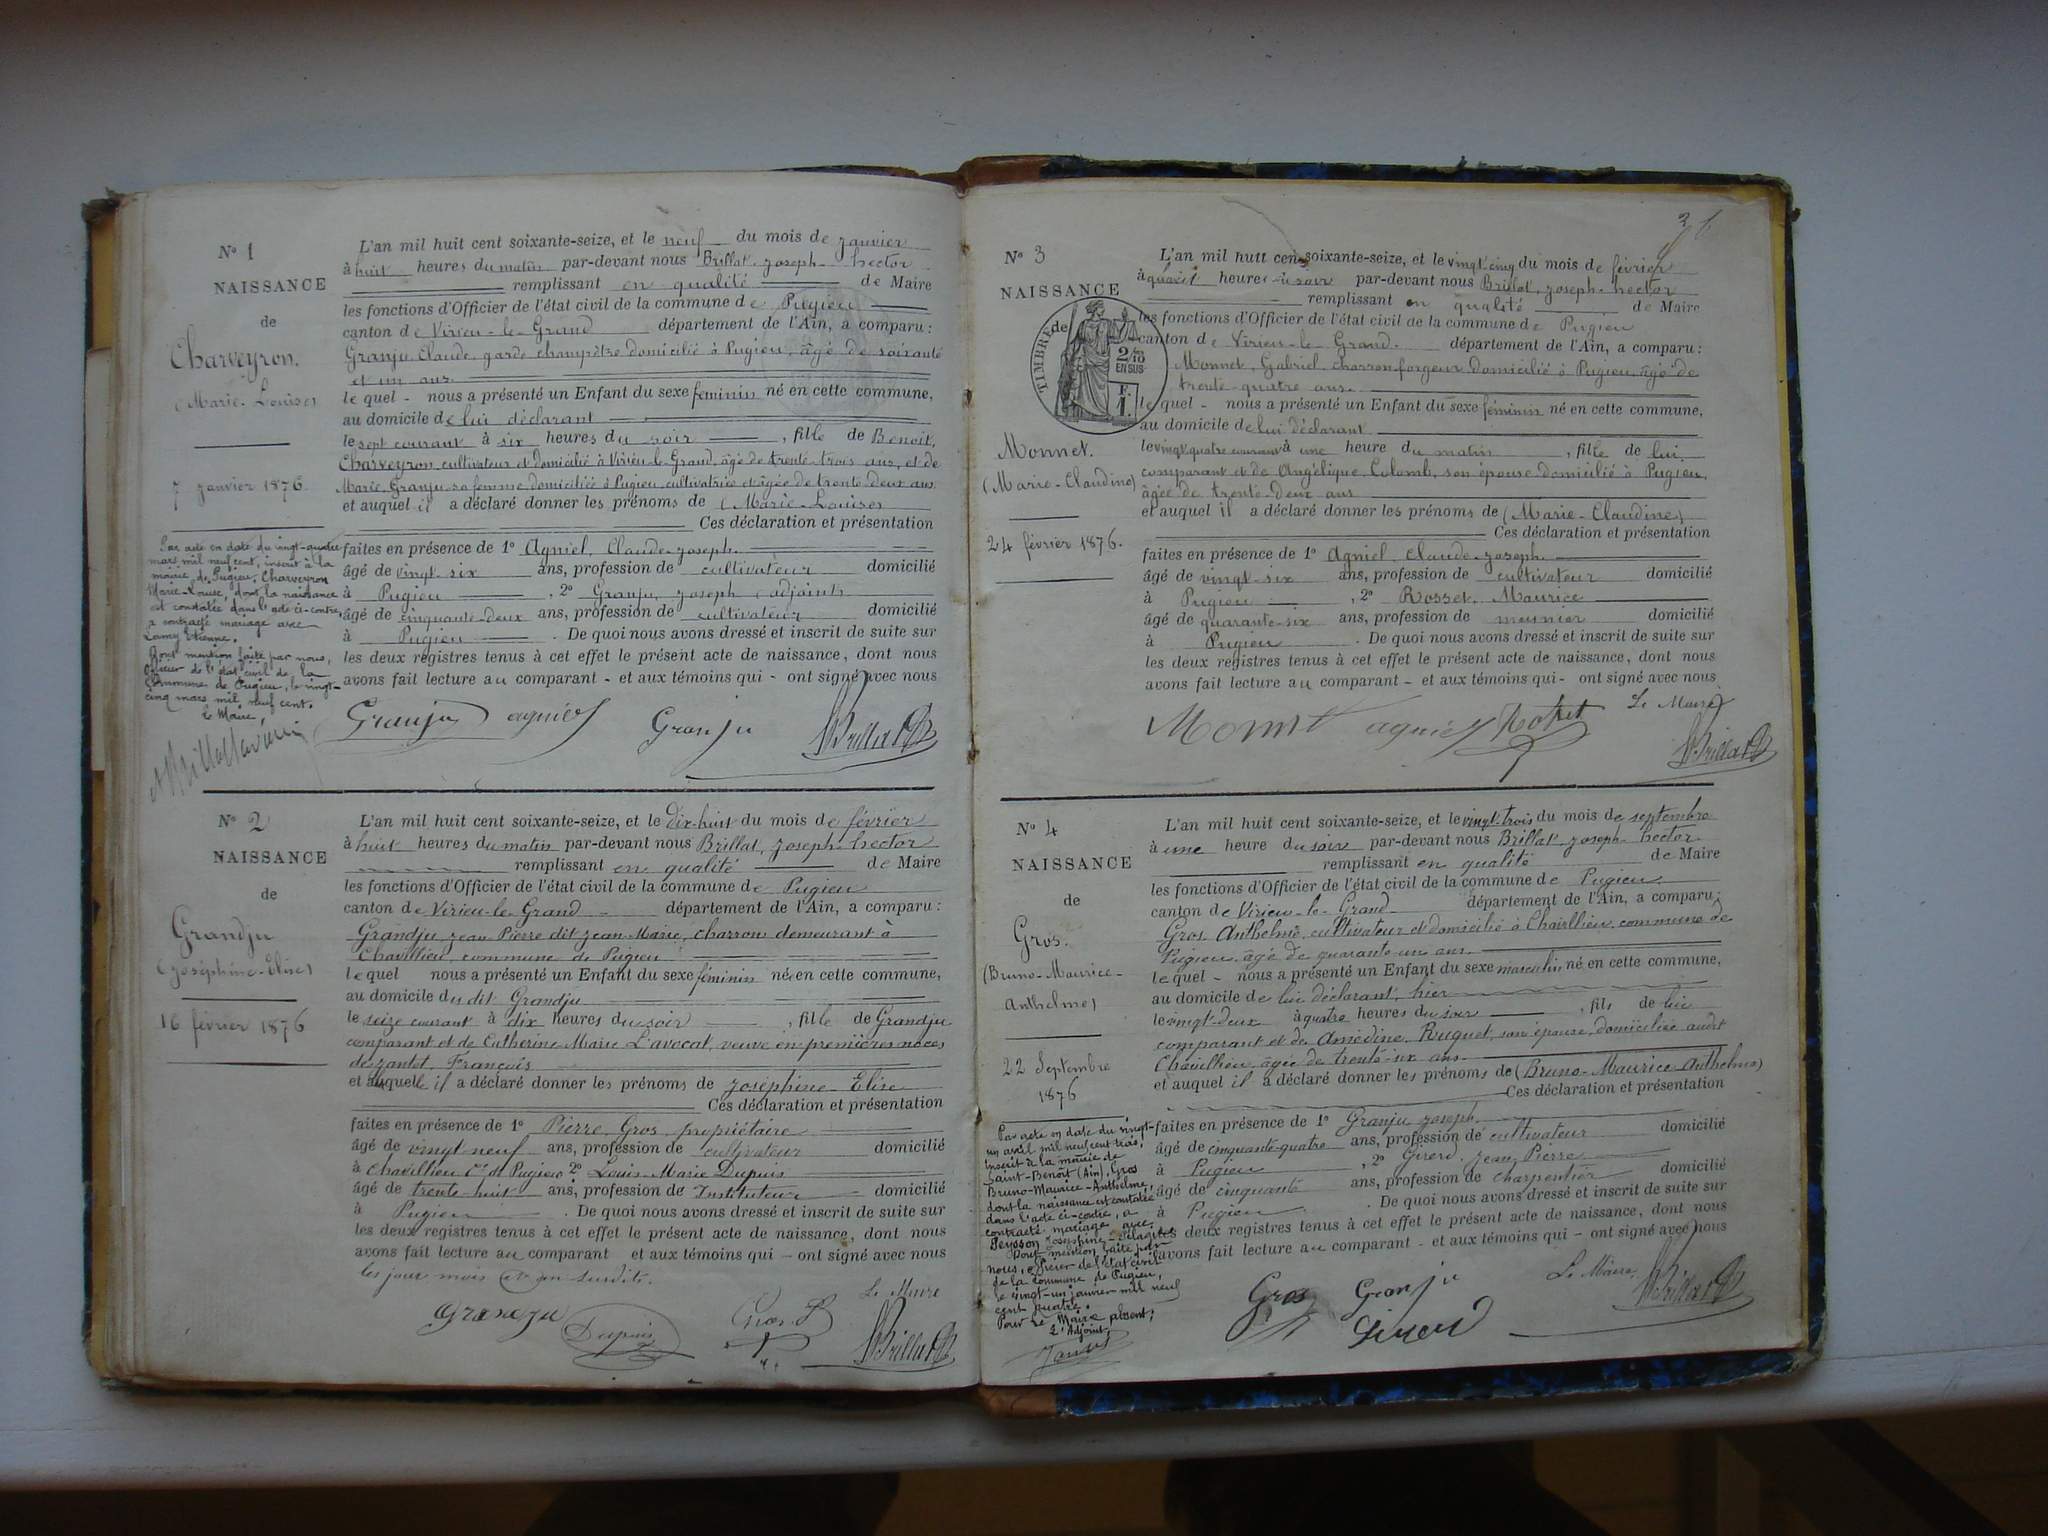 N° 1
NAISSANCE
de
Charveyron.
(Marie-Louise)
7 janvier 1876
Par acte en date du vingt-quatre
mars mil neuf cent, inscrit à la
mairie de Pugieu, Charveyron
Marie-Louise, dont la naissance
est constatée dans l'acte ci-contre,
a contracté mariage avec
Lamy Etienne.
Dont mention faite par nous,
Officier de l'état civil de la
Commune de Pugieu, le vingt-
cinq mars mil neuf cent.
Le Maire,
L'an mil huit cent soixante-seize, et le neuf du mois de janvier
à huit heures du matin par-devant nous Brillat, joseph-hector
remplissant en qualité de Maire
les fonctions d'Officier de l'état civil de la commune de Pugieu
canton de Virieu-le-Grand département de l'Ain, a comparu:
Granju Claude, garde champêtre domicilié à Pugieu, âgé de soixante
et un ans
le quel - nous a présenté un Enfant du sexe féminin né en cette commune,
au domicile de lui déclarant
le sept courant à six heures du soir, fille de Benoit,
Charveyron cultivateur et domicilié à Virieu-le-Grand, âgé de trente-trois ans, et de
Marie Granju sa femme domiciliée à Pugieu, cultivatrice et âgée de trente-deux ans
et auquel il a déclaré donner les prénoms de (Marie-Louise)
Ces déclaration et présentation
faites en présence de 1° Agniel, Claude-joseph
âgé de vingt-six ans, profession de cultivateur domicilié
à Pugieu, 2° Granju, joseph (adjoint)
âgé de cinquante-deux ans, profession de cultivateur domicilié
à Pugieu. De quoi nous avons dressé et inscrit de suite sur
les deux registres tenus à cet effet le présent acte de naissance, dont nous
avons fait lecture au comparant - et aux témoins qui - ont signé avec nous
Granju agniel Granju Brillat
N° 2
NAISSANCE
de
Grandju
(joséphine-Elise)
16 février 1876
L'an mil huit cent soixante-seize, et le dix-huit du mois de février
à huit heures du matin par-devant nous Brillat, joseph-hector
remplissant en qualité de Maire
les fonctions d'Officier de l'état civil de la commune de Pugieu
canton de Virieu-le-Grand - département de l'Ain, a comparu:
Grandju jean Pierre dit jean-Marie, charron demeurant à
Chavillieu, commune de Pugieu
le quel nous a présenté un Enfant du sexe féminin née en cette commune,
au domicile du dit Grandju
le seize courant à dix heures du soir, fille de Grandju
comparant et de Catherine-Marie L'avocat, veuve en premières noces
de jantet, François
et auquelle il a déclaré donner les prénoms de joséphine-Elise
Ces déclaration et présentation
faites en présence de 1° Pierre Gros propriétaire
âgé de vingt-neuf ans, profession de cultivateur domicilié
à Chavillieu Cne de Pugieu 2° Louis-Marie Dupuis
âgé de trente-huit ans, profession de Instituteur domicilié
à Pugieu. De quoi nous avons dressé et inscrit de suite sur
les deux registres tenus à cet effet le présent acte de naissance, dont nous
avons fait lecture au comparant et aux témoins qui - ont signé avec nous
les jour mois et an susdits.
Le Maire
Grandju Dupuis Gros P Brillat
N° 3
NAISSANCE
de
TIMBRE
2/10
EN SUS
F.
1.
Monnet.
(Marie-Claudine)
24 février 1876.
L'an mil huit cent soixante-seize, et le vingt-cinq du mois de février
à quatre heures du soir par-devant nous Brillat, joseph-hector
remplissant en qualité de Maire
les fonctions d'Officier de l'état civil de la commune de Pugieu
canton de Virieu-le-Grand. département de l'Ain, a comparu:
Monnet, Gabriel, charron-forgeur domicilié à Pugieu, âgé de
trente-quatre ans
le quel - nous a présenté un Enfant du sexe féminin né en cette commune,
au domicile de lui déclarant
le vingt-quatre courant à une heure du matin, fille de lui
comparant et de Angélique Colomb, son épouse domicilié à Pugieu,
âgée de trente-deux ans
et auquel il a déclaré donner les prénoms de (Marie-Claudine)
Ces déclaration et présentation
faites en présence de 1° Agniel Claude-joseph
âgé de vingt-six ans, profession de cultivateur domicilié
à Pugieu, 2° Rosset, Maurice
âgé de quarante-six ans, profession de meunier domicilié
à Pugieu. De quoi nous avons dressé et inscrit de suite sur
les deux registres tenus à cet effet le présent acte de naissance, dont nous
avons fait lecture au comparant - et aux témoins qui - ont signé avec nous
Le Maire
Monnet agniel Rosset Brillat
N° 4
NAISSANCE
de
Gros.
(Bruno-Maurice-
Anthelme)
22 Septembre
1876
Par acte en date du vingt-
un avril mil neuf cent trois,
inscrit à la mairie de
Saint-Benoît (Ain), Gros
Bruno-Maurice-Anthelme,
dont la naissance est constatée
dans l'acte ci-contre, a
contracté mariage avec
Peysson Joséphine-
Dont mention faite par
nous, officier de l'état civil
de la commune de Pugieu,
le vingt-un janvier mil neuf
cent quatre.
Pour le Maire absent,
L'Adjoint
L'an mil huit cent soixante-seize, et le vingt-trois du mois de septembre
à une heure du soir par-devant nous Brillat joseph-hector
remplissant en qualité de Maire
les fonctions d'Officier de l'état civil de la commune de Pugieu
canton de Virieu-le-Grand département de l'Ain, a comparu:
Gros Anthelme, cultivateur et domicilié à Chavillieu, commune de
Pugieu, âgé de quarante-un ans
le quel - nous a présenté un Enfant du sexe masculin né en cette commune,
au domicile de lui déclarant, hier
le vingt-deux à quatre heures du soir, fils de lui
comparant et de Amédine Ruguet, son épouse, domiciliée audit
Chavillieu, âgée de trente-six ans
et auquel il a déclaré donner les prénoms de (Bruno-Maurice-Anthelme)
Ces déclaration et présentation
faites en présence de 1° Granju joseph
âgé de cinquante-quatre ans, profession de cultivateur domicilié
à Pugieu, 2° Girerd, jean Pierre
âgé de cinquante ans, profession de charpentier domicilié
à Pugieu. De quoi nous avons dressé et inscrit de suite sur
les deux registres tenus à cet effet le présent acte de naissance, dont nous
avons fait lecture au comparant - et aux témoins qui - ont signé avec nous
Le Maire
Gros Granju Brillat
Girerd